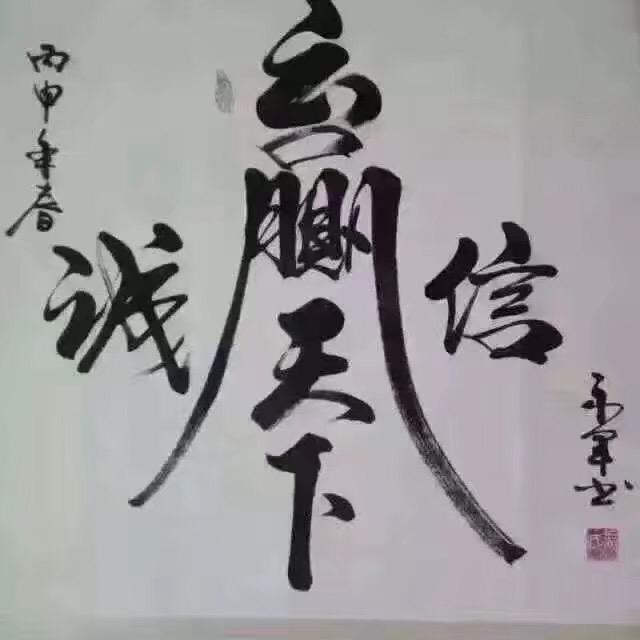 丙申年春
诚信
赢天下
永军书